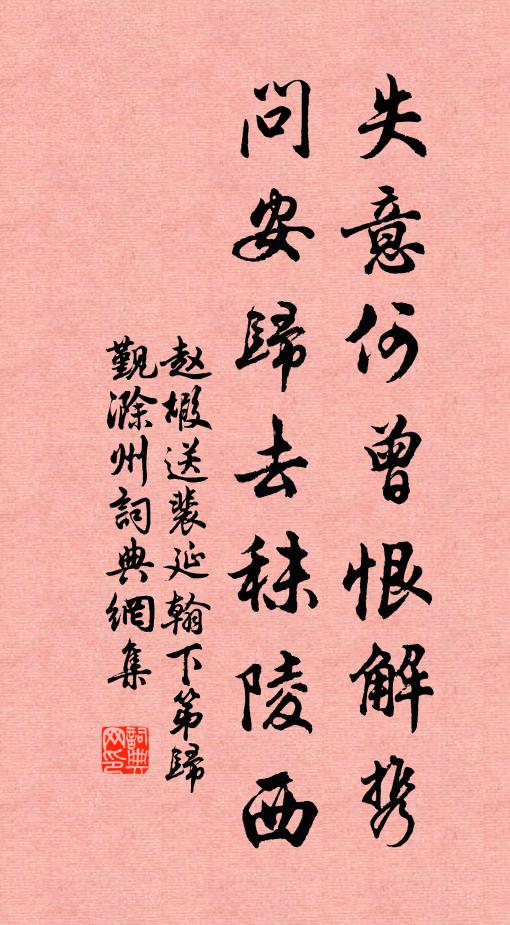 失意何曾恨解携
問安歸去秣陵西
赵嘏送裴延翰下第歸
觐滁州詞典網集
詞典網印